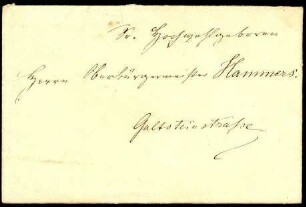 Sr. Hochwohlgeboren
Herrn Oberbürgermeister Hammers.
Goltsteinstraße